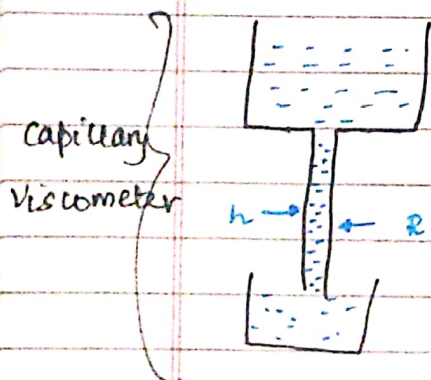 Capillary
Viscometer
h
R